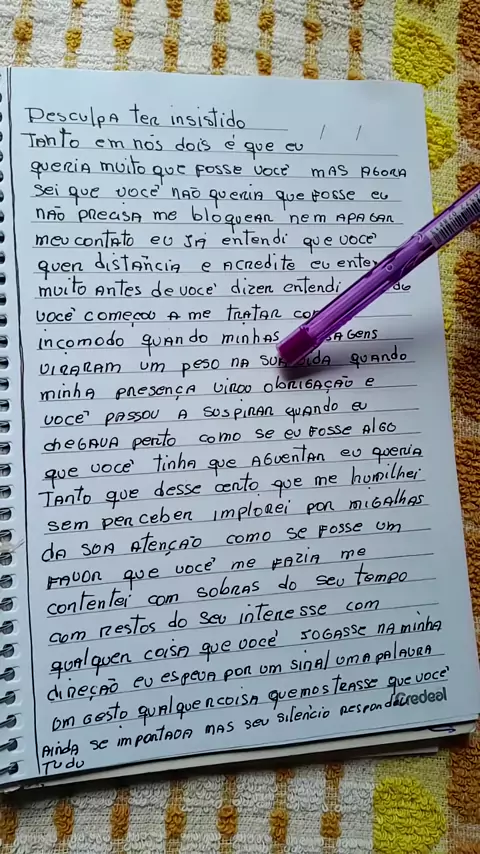 Desculpa ter insistido
Tanto em nós dois é que eu
queria muito que fosse você mas agora
sei que você não queria que fosse eu
não precisa me bloquear nem apagar
meu contato eu já entendi que você
quer distância e acredite eu
muito antes de você dizer entendi
você começou a me tratar
incomodo quando minhas
viraram um peso na sua vida quando
minha presença virou obrigação e
você passou a suspirar quando eu
chegava perto como se eu fosse algo
que você tinha que aguentar eu queria
Tanto que desse certo que me humilhei
sem perceber implorei por migalhas
da sua atenção como se fosse um
favor que você me fazia me
contentei com sobras do seu tempo
com restos do seu interesse com
qualquer coisa que você jogasse na minha
direção eu espeva por um sinal uma palavra
um gesto qualquer coisa que mostrasse que você
Ainda se importada mas seu silêncio
Tudo
Credeal